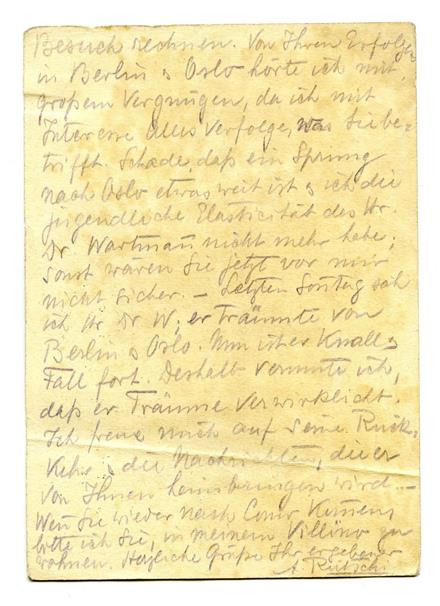 Besuch rechnen. Von Ihren Erfolgen
in Berlin & Oslo hörte ich mit
großem Vergnügen, da ich mit
Interesse alles verfolge, was Sie be-
trifft. Schade, daß ein Sprung
nach Oslo etwas weit ist & ich die
jugendliche Elasticität des Hr.
Dr. Wartmañ nicht mehr habe;
sonst wären Sie jetzt vor mir
nicht sicher. – Letzten Sontag sah
ich Hr Dr W; er träumte von
Berlin & Oslo. Nun ist er Knall &
Fall fort. Deshalb vermute ich,
daß er Träume verwirklicht.
Ich freue mich auf seine Rück-
kehr & die Nachrichten, die er
von Ihnen heimbringen wird. –
Weñ Sie wieder nach Como kom̃en,
bitte ich Sie, in meinem Villino zu
wohnen. Herzliche Grüße Ihr ergebener
A. Rütschi